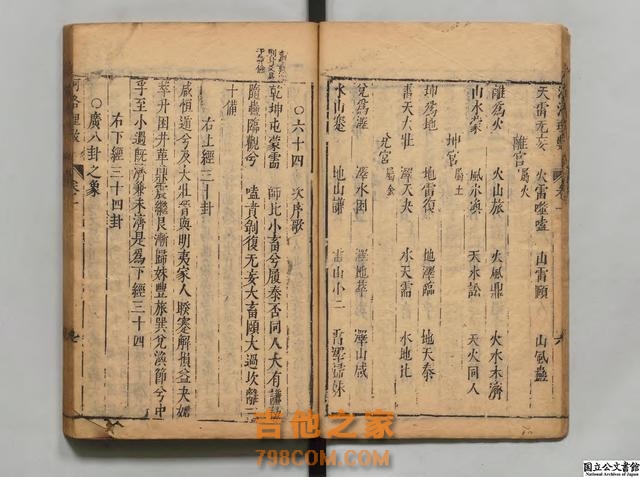 天雷无妄 火雷噬嗑 山雷頤 山風蠱
離宮屬火
離爲火 火山旅 火風鼎 火水未濟
山水蒙 風水渙 天水訟 天火同人
坤宮屬土
坤爲地 地雷復 地澤臨 地天泰
雷天大壯 澤天夬 水天需 水地比
兌宮屬金
兌爲澤 澤水困 澤地萃 澤山咸
水山蹇 地山謙 雷山小 雷澤歸妹
〇六十四 次序歌
乾坤屯蒙需 師比小畜兮履泰否同人大有謙
隨蠱臨觀兮 嗑賁剝復无妄大畜頤大過坎離三
十備
右上經三十卦
咸恒遯兮及大壯晉與明夷家人睽蹇解損益夬姤
萃升困井革鼎震繼艮漸歸妹豐旅巽兌渙節兮中
孚至小過既濟兼未濟是爲下經三十四
右下經三十四卦
〇廣八卦之象
河洛理數
卷一
七
吉他之家
798COM.COM
国立公文書館
National Archives of Japan